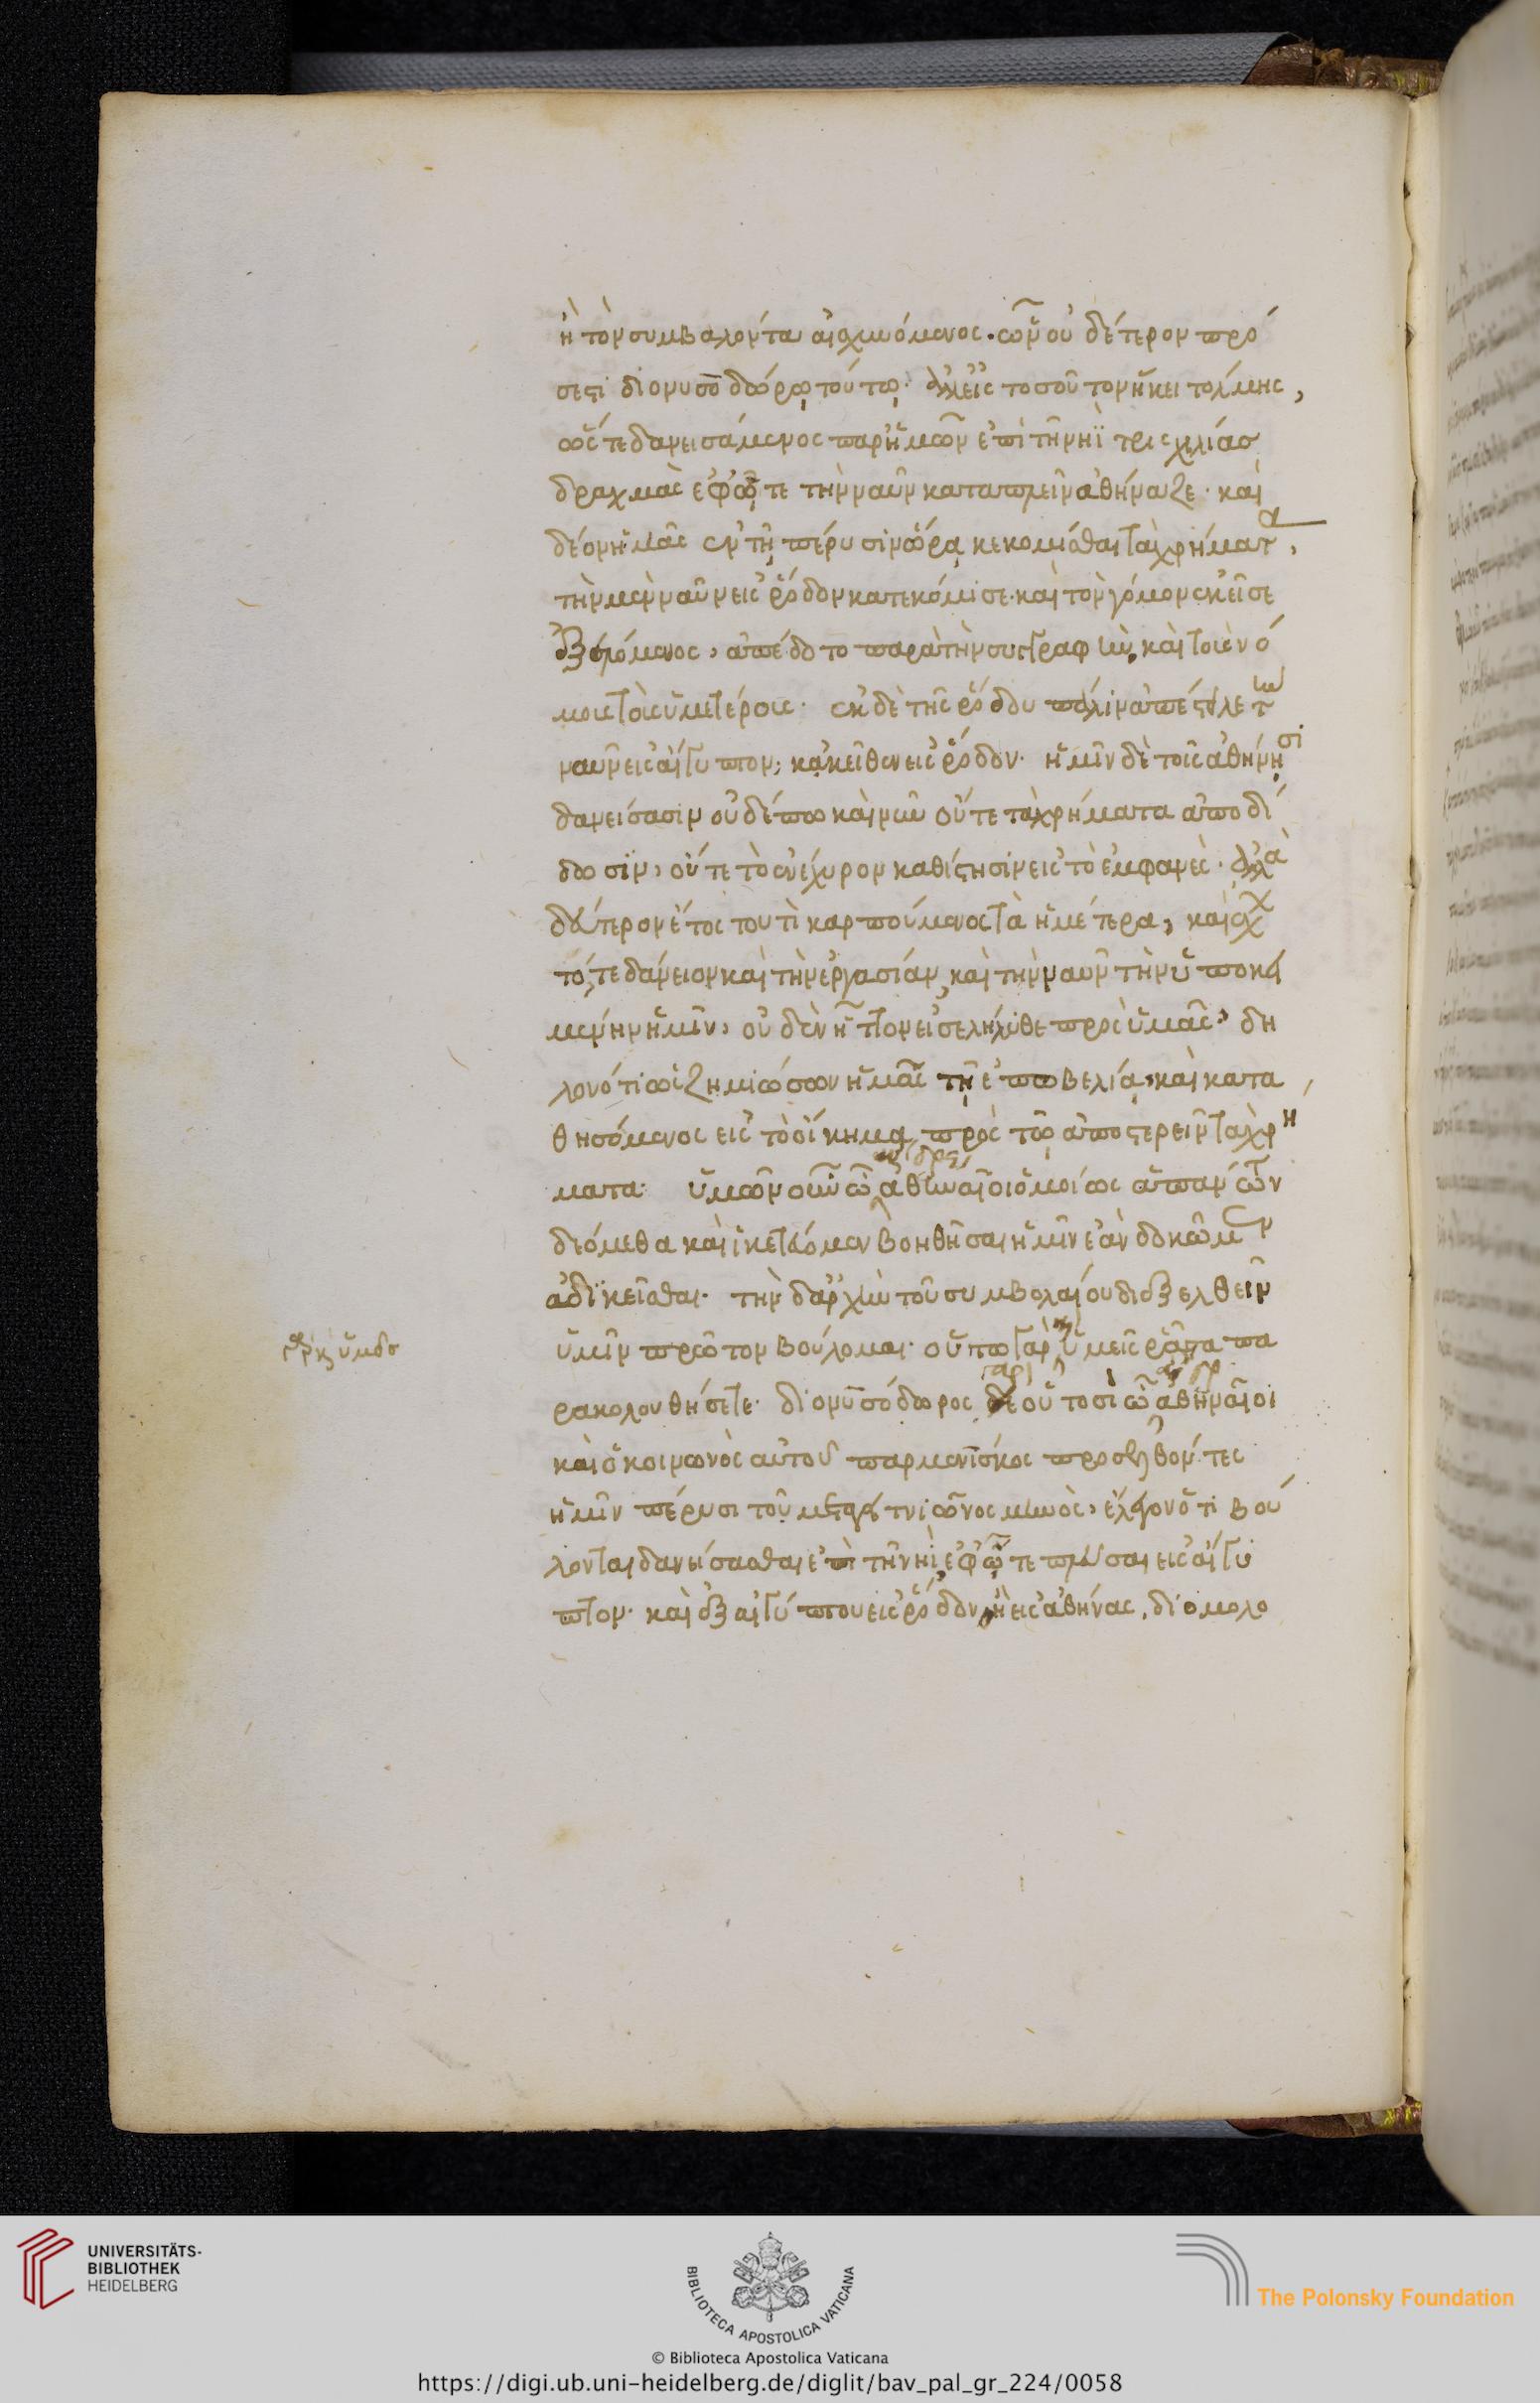 ἢ τὸν συμβαλόντα αἰσχυνόμενος. ὧν οὐδέτερον πρό
σεστι διονυσοδώρῳ τούτῳ. ἀλλ' εἰς τοσοῦτον ἥκει τόλμης,
ὥστε δανεισάμενος παρ' ἡμῶν ἐπὶ τῇ νηῒ τρισχιλίας
δραχμὰς ἐφ' ᾧ τε τὴν ναῦν καταπλεῖν ἀθήναζε. καὶ
δέον ἡμᾶς ἐν τῇ πέρυσιν ὥρᾳ κεκομίσθαι τὰ χρήματα,
τὴν μὲν ναῦν εἰς ῥόδον κατεκόμισε. καὶ τὸν γόμον ἐκεῖσε
ἐξελόμενος, ἀπέδοτο παρὰ τὴν συγγραφὴν, καὶ τοὺς νό
μους τοὺς ὑμετέρους. ἐκ δὲ τῆς ῥόδου πάλιν ἀπέστειλε τὴν
ναῦν εἰς αἴγυπτον, κἀκεῖθεν εἰς ῥόδον. ἡμῖν δὲ τοῖς ἀθήνῃσι
δανείσασιν οὐδέπω καὶ νῦν οὔτε τὰ χρήματα ἀποδί
δωσιν, οὔτε τὸ ἐνέχυρον καθίστησιν εἰς τὸ ἐμφανές. ἀλλὰ
δεύτερον ἔτος τουτὶ καρπούμενος τὰ ἡμέτερα, καὶ ἔχων
τό, τε δάνειον καὶ τὴν ἐργασίαν, καὶ τὴν ναῦν τὴν ὑποκει
μένην ἡμῖν, οὐδὲν ἧττον εἰσελήλυθε πρὸς ὑμᾶς, δη
λονότι ὡς ζημιώσων ἡμᾶς τῇ ἐπωβελίᾳ, καὶ κατα
θησόμενος εἰς τὸ οἴκημα, πρὸς τῷ ἀποστερεῖν τὰ χρή
ματα. ὑμῶν οὖν ὦ ἀθηναῖοι ὁμοίως ἁπάντων
δεόμεθα καὶ ἱκετεύομεν βοηθῆσαι ἡμῖν ἐὰν δοκῶμεν
ἀδικεῖσθαι. τὴν δ' ἀρχὴν τοῦ συμβολαίου διεξελθεῖν
ὑμῖν πρῶτον βούλομαι. οὕτω γὰρ καὶ ὑμεῖς ῥᾷστα πα
ρακολουθήσετε. διονυσόδωρος οὑτοσὶ ὦ ἀθηναῖοι
καὶ ὁ κοινωνὸς αὐτοῦ παρμενίσκος προσελθόντες
ἡμῖν πέρυσι τοῦ μεταγειτνιῶνος μηνὸς, ἔλεγον ὅτι βού
λονται δανείσασθαι ἐπὶ τῇ νηῒ, ἐφ' ᾧ τε πλεῦσαι εἰς αἴγυ
πτον. καὶ ἐξ αἰγύπτου εἰς ῥόδον, ἢ εἰς ἀθήνας, διομολο
UNIVERSITÄTS-
BIBLIOTHEK
HEIDELBERG
BIBLIOTECA APOSTOLICA VATICANA
The Polonsky Foundation
© Biblioteca Apostolica Vaticana
https://digi.ub.uni-heidelberg.de/diglit/bav_pal_gr_224/0058